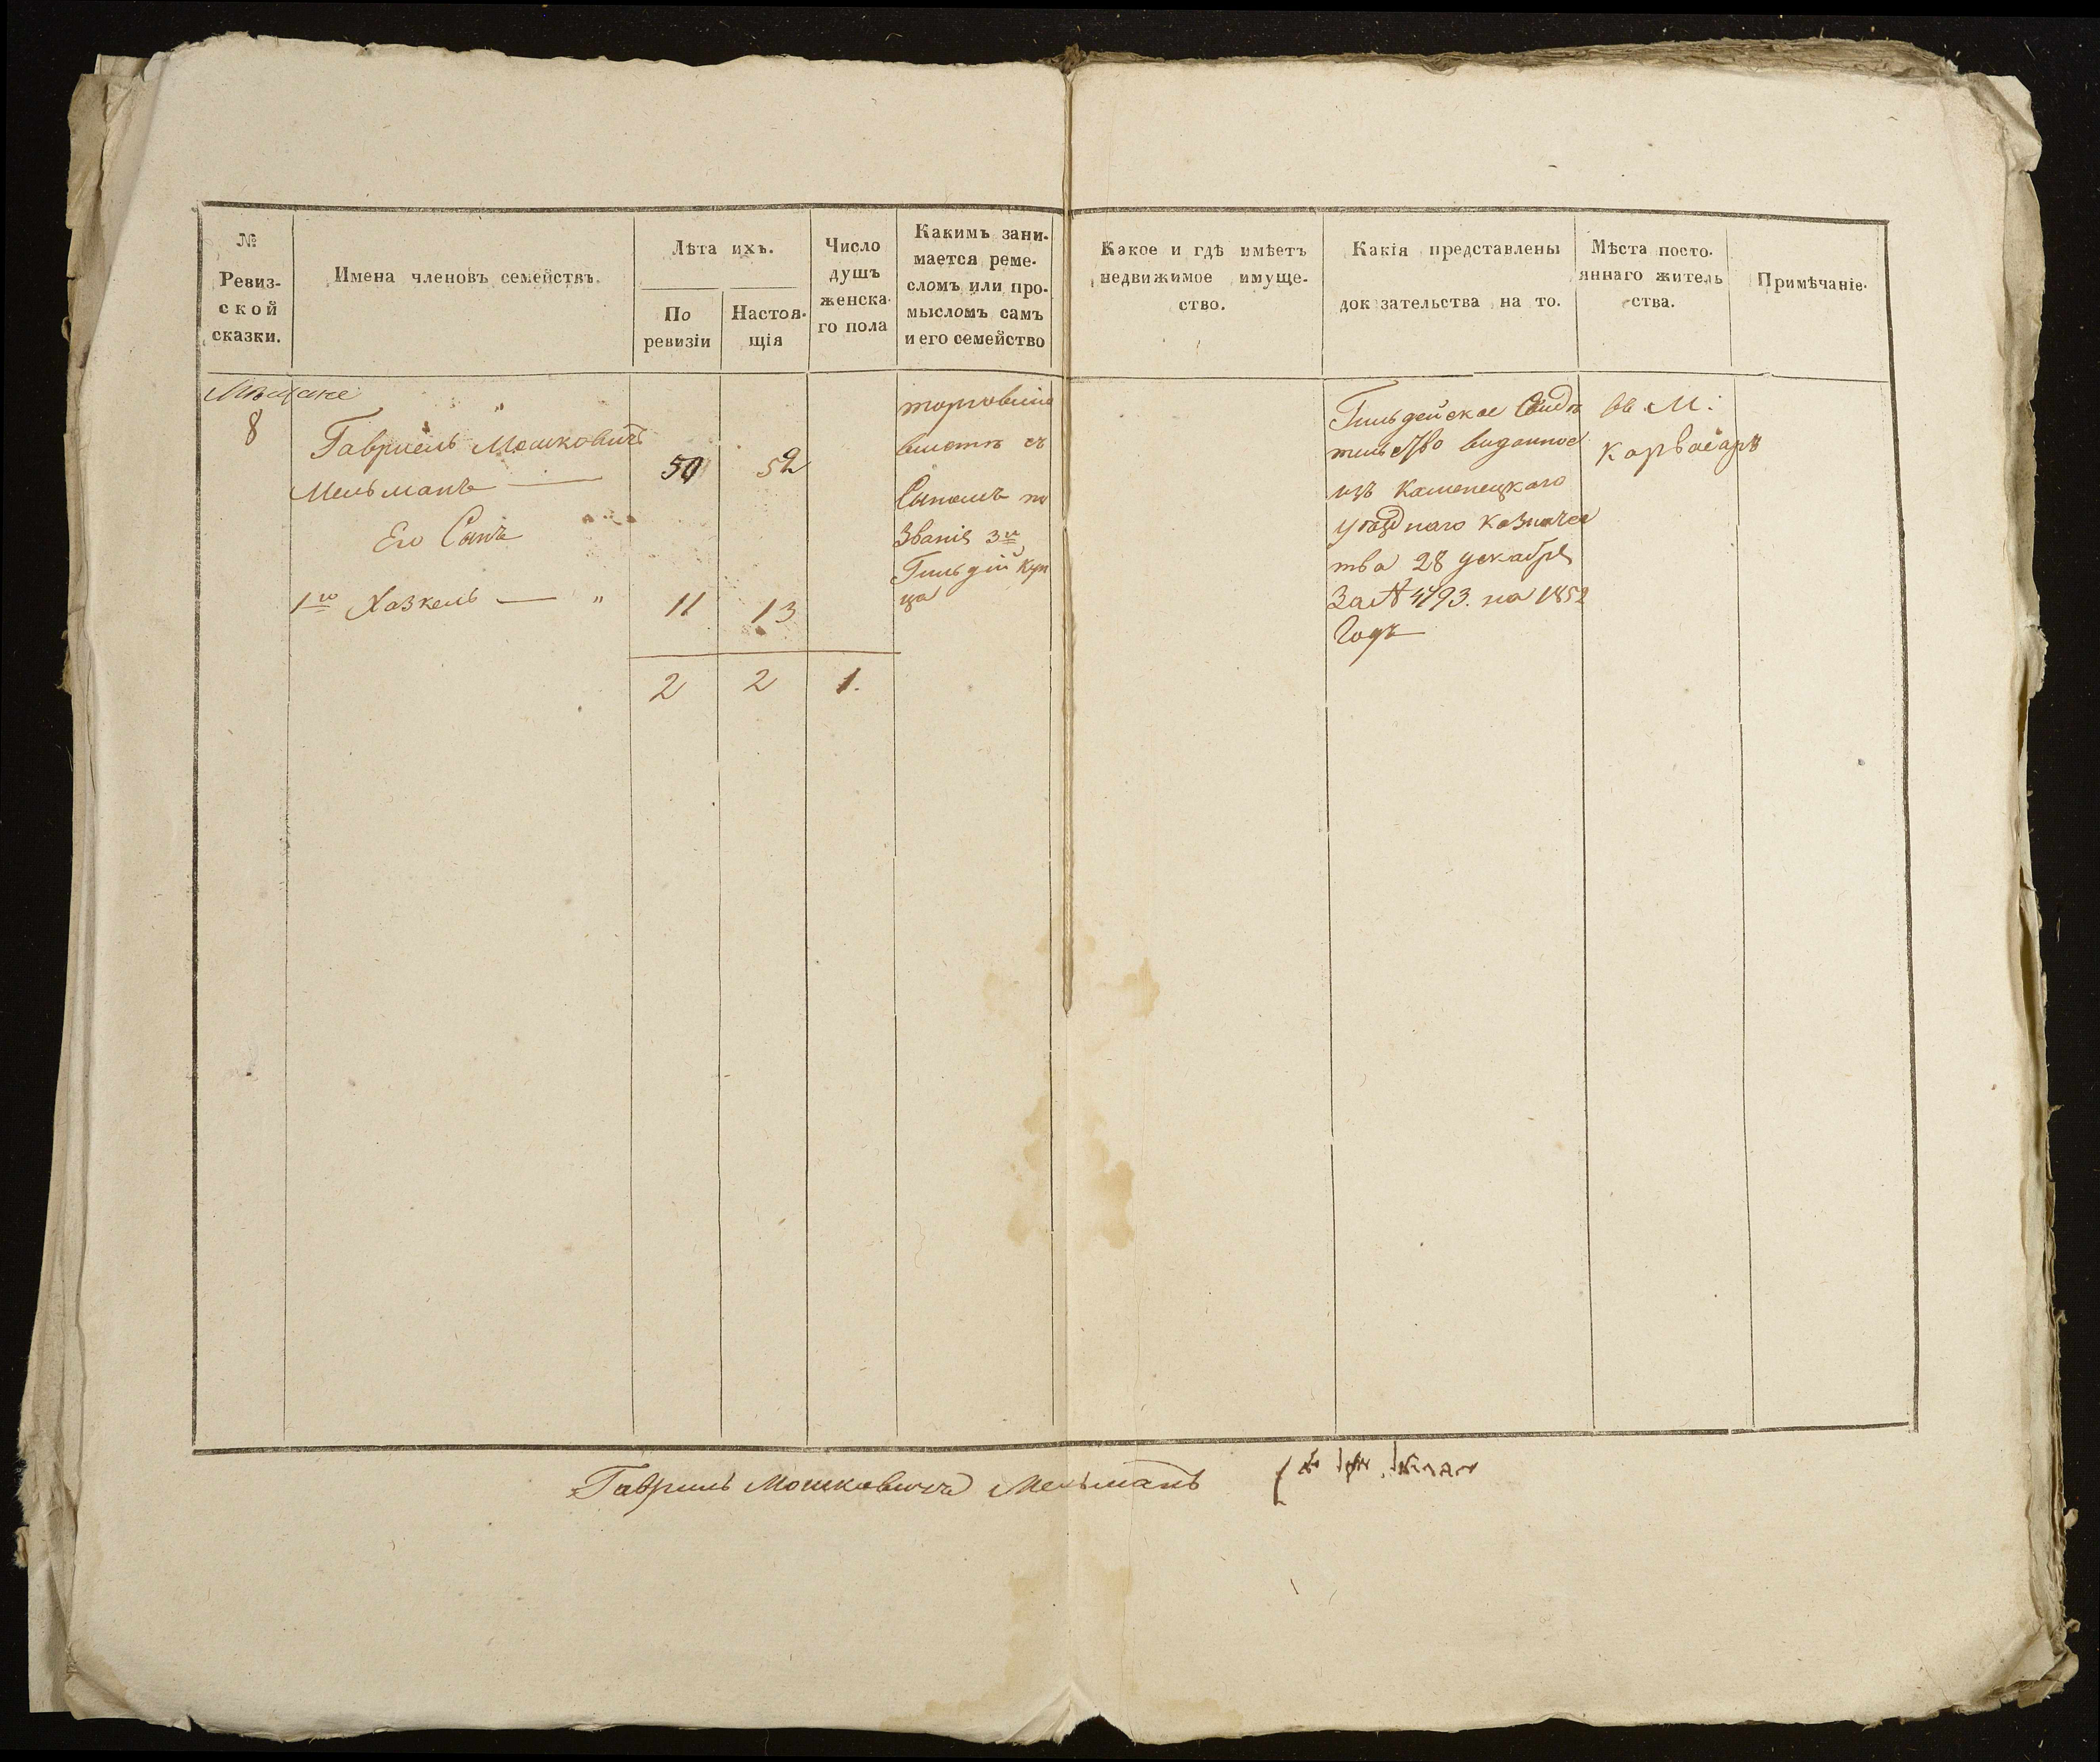 №
Ревиз-
ской
сказки.
Имена членовъ семействъ.
Лѣта ихъ.
По
ревизіи
Настоя-
щія
Число
душъ
женска-
го пола
Какимъ зани-
мается реме-
сломъ или про-
мысломъ самъ
и его семейство
Какое и гдѣ имѣетъ
недвижимое имуще-
ство.
Какія представлены
док зательства на то.
Мѣста посто-
яннаго житель
ства.
Примѣчаніе.
Мѣщане
8
Гавриель Мошковичъ
Мельманъ
50 52
Его Сынъ
1й Хазкель — " 11 13
2 2 1.
торговлею
вместѣ съ
Сыномъ по
Званія 3й
Гильдій Куп
ца
Гильдейское Свидѣ
тельство виданное
изъ Каменецкаго
уѣзднаго Казначей
тва 28 декабря
За № 4793. на 1852
Годъ
въ М:
Карвасарѣ
Гавриль Мошковичъ Мельманъ